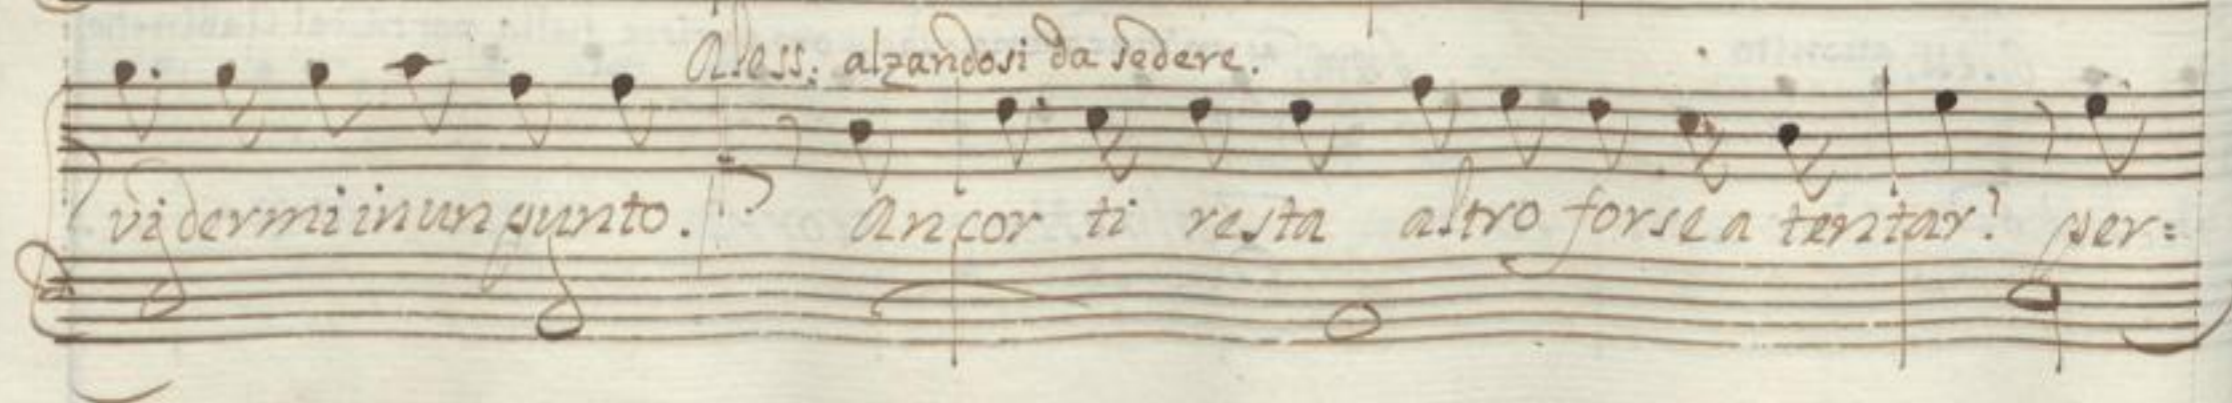 Aless: alzandosi da sedere.
vidermi in un punto. Ancor ti resta altro forse a tentar? per=